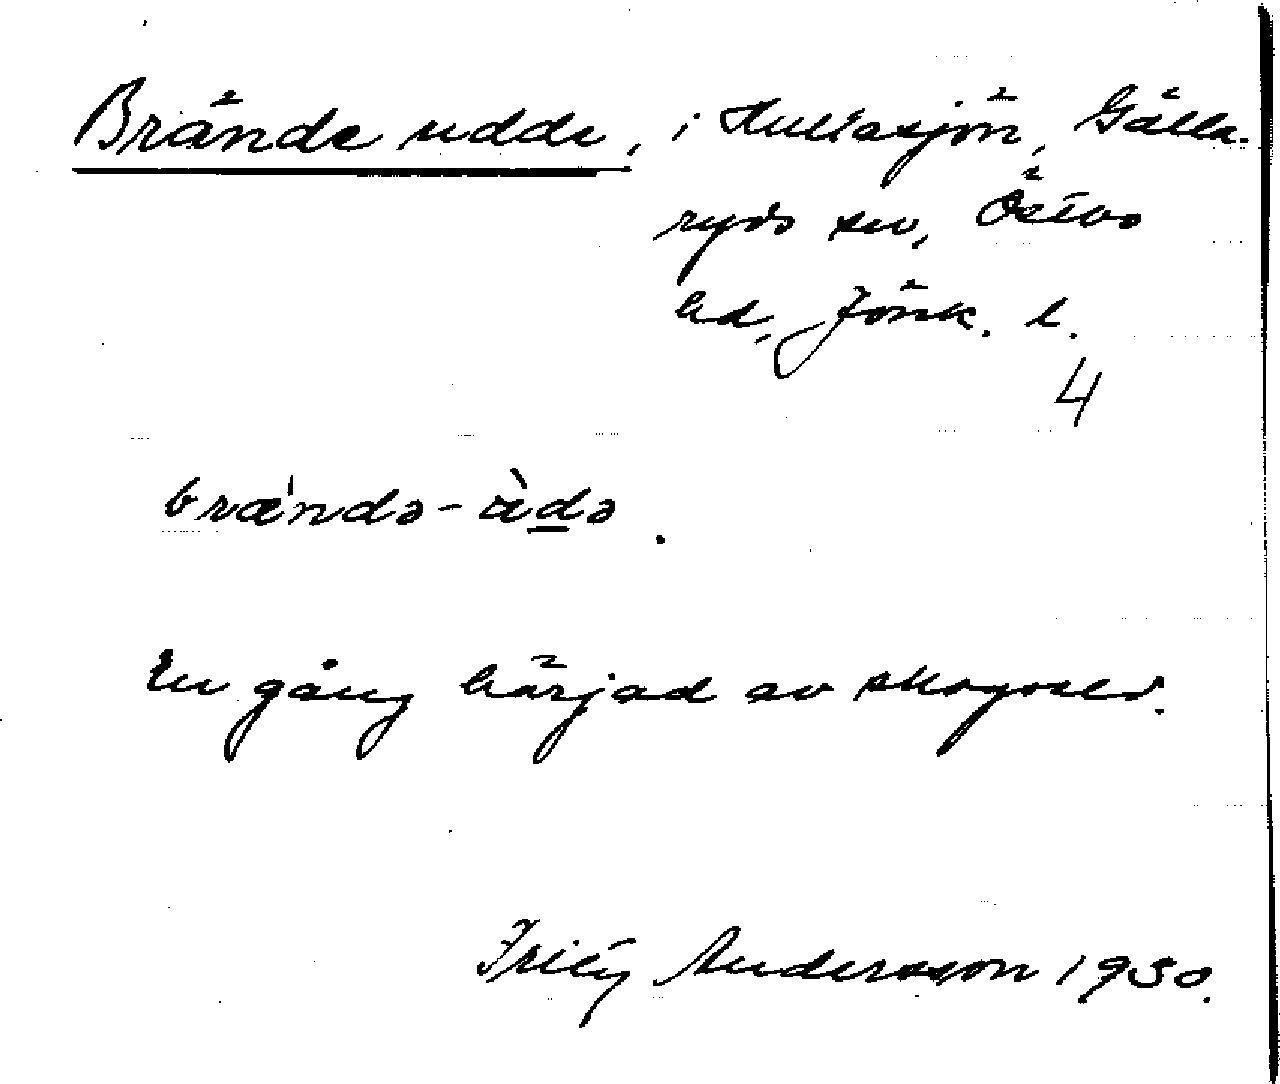 Brände udde, i Hultasjön, Gälla-
ryds sn, Östbo
hd, Jönk. l.
4
brændə-ùdə.
En gång härjad av skogseld.
Fritz Andersson 1930.